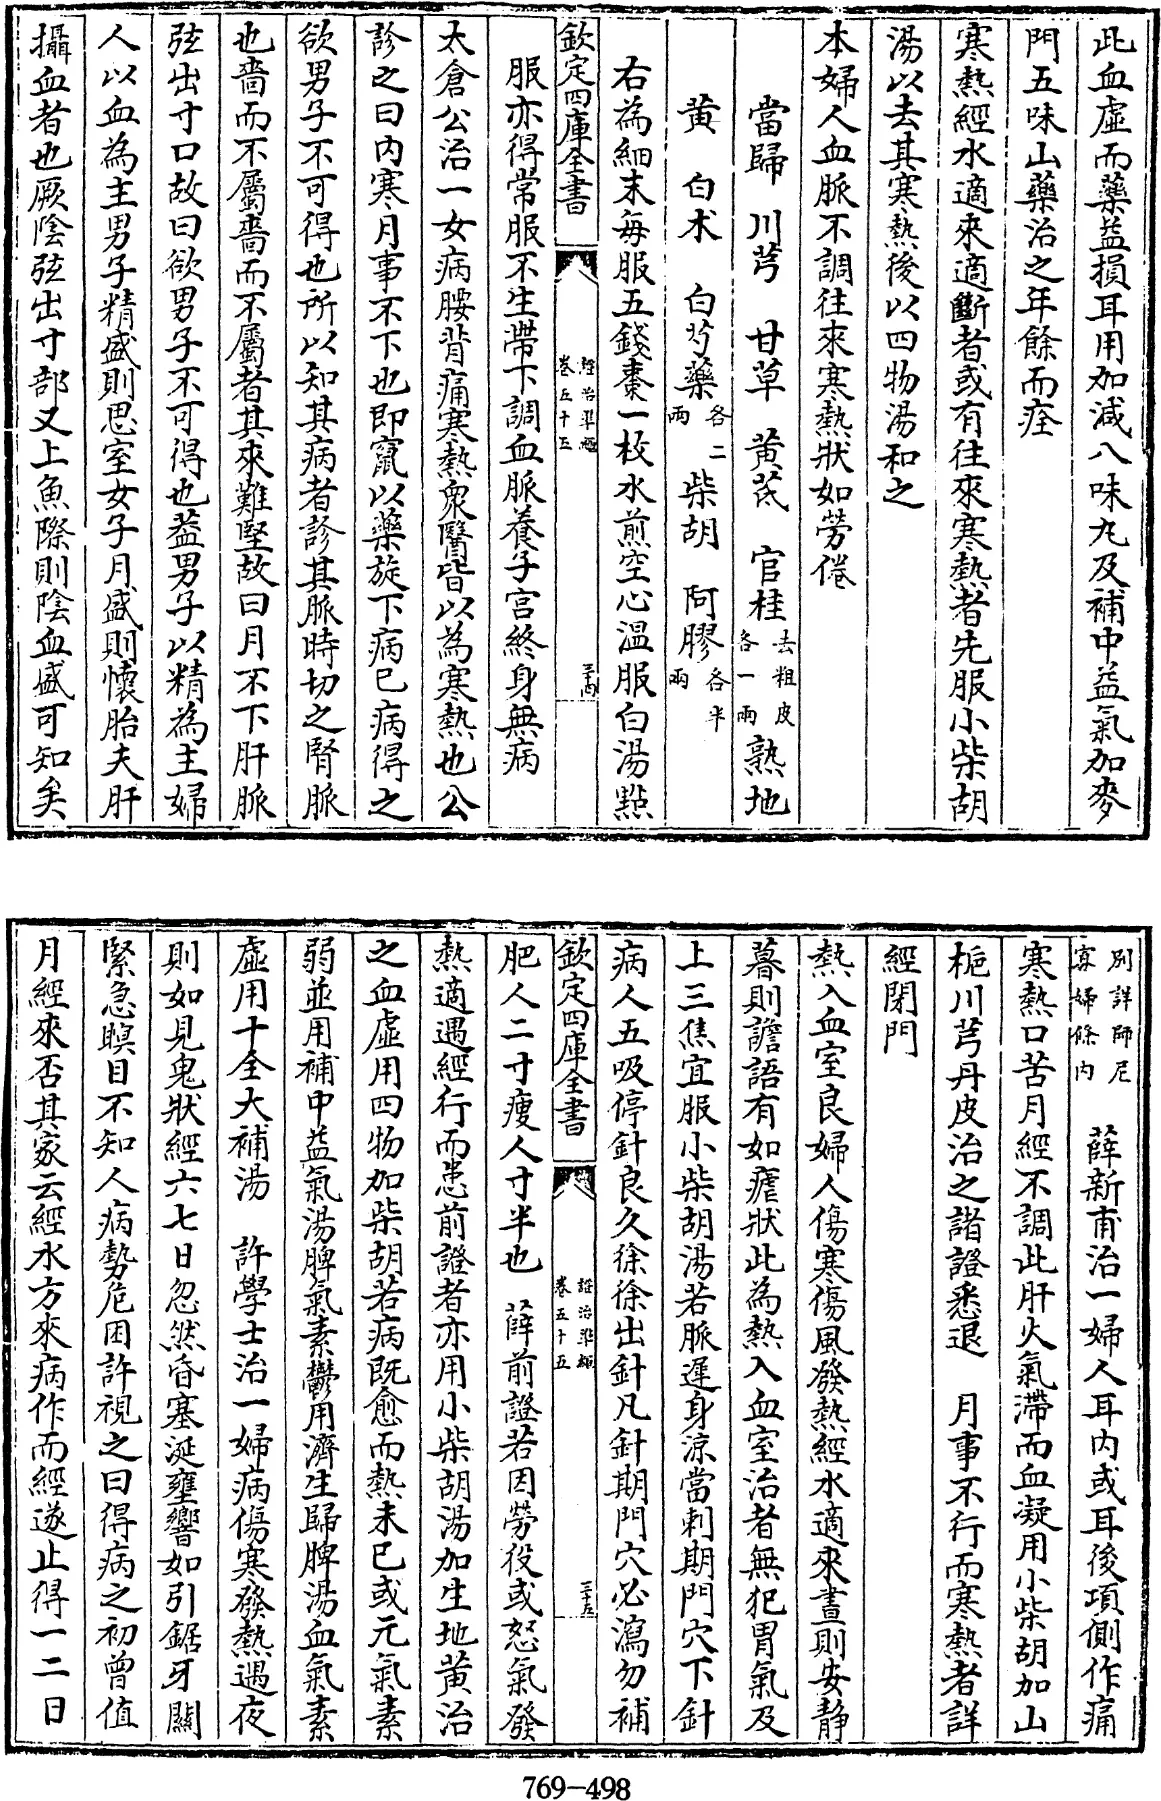 此血虛而藥益損耳用加減八味丸及補中益氣加麥
門五味山藥治之年餘而痊
寒熱經水適來適斷者或有往來寒熱者先服小柴胡
湯以去其寒熱後以四物湯和之
本婦人血脈不調往來寒熱狀如勞倦
當歸 川芎 甘草 黃芪 官桂去粗皮各一兩 熟地
黃 白术 白芍藥各二兩 柴胡 阿膠各半兩
右為細末每服五錢棗一枚水煎空心溫服白湯點
欽定四庫全書 證治準繩卷五十五 三十四
服亦得常服不生帶下調血脈養子宮終身無病
太倉公治一女病腰背痛寒熱衆醫皆以為寒熱也公
診之曰內寒月事不下也即竄以藥旋下病已病得之
欲男子不可得也所以知其病者診其脈時切之腎脈
也嗇而不屬嗇而不屬者其來難堅故曰月不下肝脈
弦出寸口故曰欲男子不可得也葢男子以精為主婦
人以血為主男子精盛則思室女子月盛則懷胎夫肝
攝血者也厥陰弦出寸部又上魚際則陰血盛可知矣
別詳師尼寡婦條內 薛新甫治一婦人耳內或耳後項側作痛
寒熱口苦月經不調此肝火氣滯而血凝用小柴胡加山
梔川芎丹皮治之諸證悉退 月事不行而寒熱者詳
經閉門
熱入血室良婦人傷寒傷風發熱經水適來晝則安靜
暮則譫語有如瘧狀此為熱入血室治者無犯胃氣及
上三焦宜服小柴胡湯若脈遲身涼當刺期門穴下針
病人五吸停針良久徐徐出針凡針期門穴必瀉勿補
欽定四庫全書 證治準繩卷五十五 三十五
肥人二寸瘦人寸半也 薛前證若因勞役或怒氣發
熱適遇經行而患前證者亦用小柴胡湯加生地黃治
之血虛用四物加柴胡若病既愈而熱未已或元氣素
弱並用補中益氣湯脾氣素鬱用濟生歸脾湯血氣素
虛用十全大補湯 許學士治一婦病傷寒發熱遇夜
則如見鬼狀經六七日忽然昏塞涎壅響如引鋸牙關
緊急瞑目不知人病勢危困許視之曰得病之初曾值
月經來否其家云經水方來病作而經遂止得一二日
769–498